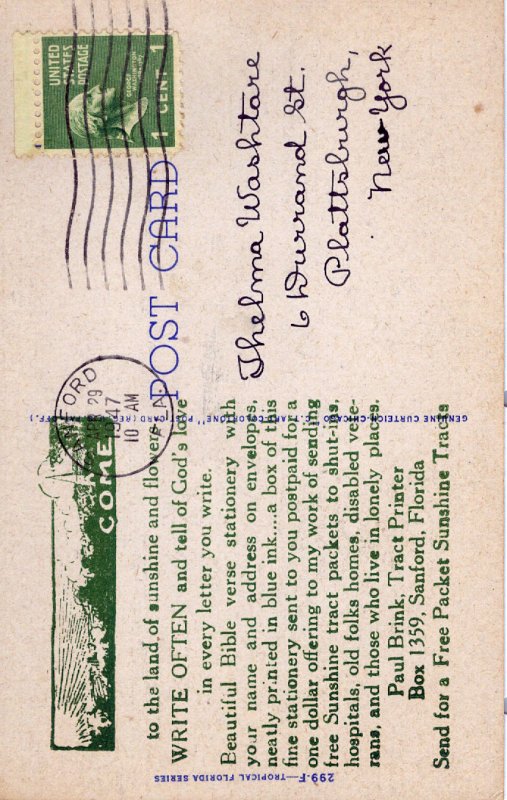 COME
to the land of sunshine and flowers
WRITE OFTEN and tell of God's love
in every letter you write.
Beautiful Bible verse stationery with
your name and address on envelopes,
neatly printed in blue ink....a box of this
fine stationery sent to you postpaid for a
one dollar offering to my work of sending
free Sunshine tract packets to shut-ins,
hospitals, old folks homes, disabled vete-
rans, and those who live in lonely places.
Paul Brink, Tract Printer
Box 1359, Sanford, Florida
Send for a Free Packet Sunshine Tracts
299-F—TROPICAL FLORIDA SERIES
GENUINE CURTEICH-CHICAGO "C.T. ART-COLORTONE" POST CARD (REG. U.S. PAT. OFF.)
POST CARD
SANFORD
APR 29
1947
10 AM
FLA.
UNITED
STATES
POSTAGE
GEORGE
WASHINGTON
1 CENT 1
Thelma Washtare
6 Durrand St.
Plattsburgh,
New York